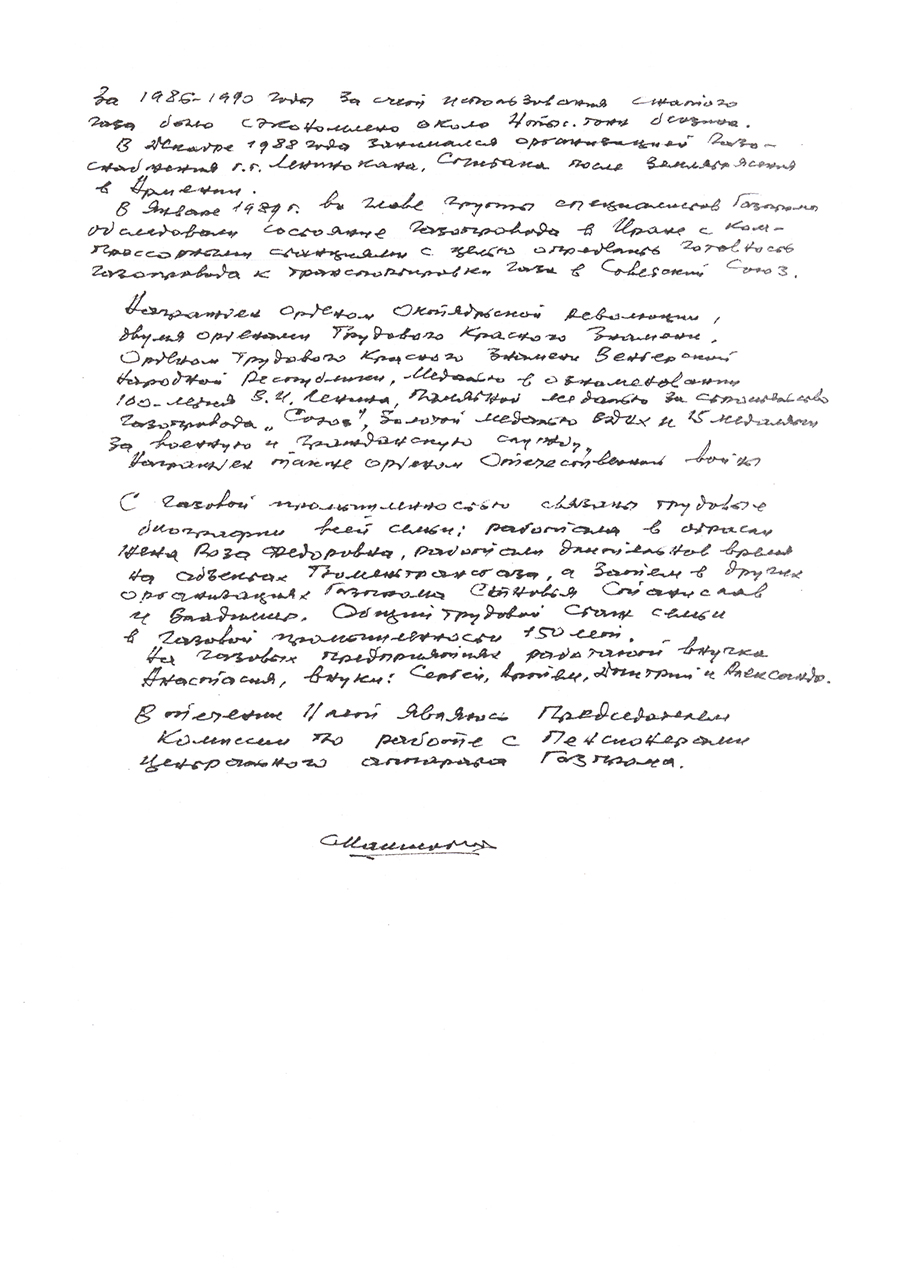 За 1986-1990 годы за счет использования сжатого
газа было сэкономлено около 4 тыс. тонн бензина.
В Декабре 1988 года занимался организацией газо-
снабжения г.г. Ленинокана, Спитака после землетрясения
в Армении.
В Январе 1989 г. во главе группы специалистов Газпрома
обследовали состояние газопровода в Иране с ком-
прессорными станциями с целью определить готовность
газопровода к транспортировки газа в Советский Союз.
Награжден Орденом Октябрьской революции,
двумя орденами Трудового Красного Знамени,
Орденом Трудового Красного Знамени Венгерской
Народной Республики, Медалью в ознаменовании
100-летия В.И. Ленина, Памятной медалью за строительство
газопровода „Союз", Золотой медалью ВДНХ и 15 медалями
за военную и гражданскую службу,
Награжден также орденом Отечественной войны
С газовой промышленностью связаны трудовые
биографии всей семьи: работала в отрасли
жена Роза Федоровна, работали длительное время
на объектах Тюментрансгаза, а затем в других
организациях Газпрома Сыновья Станислав
и Владимир. Общий трудовой стаж семьи
в газовой промышленности 150 лет.
На газовых предприятиях работают внучка
Анастасия, внуки: Сергей, Артём, Дмитрий и Александр.
В течение 11 лет являюсь Председателем
Комиссии по работе с Пенсионерами
центрального аппарата Газпрома.